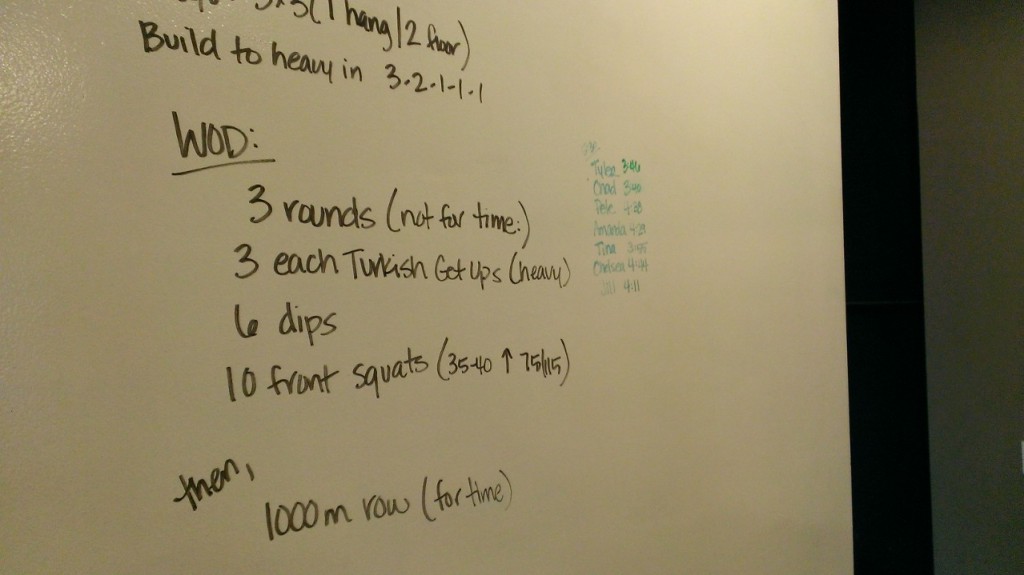 3x3 (1 hang/2 floor)
Build to heavy in 3-2-1-1-1
WOD:
3 rounds (not for time:)
3 each Turkish Get Ups (heavy)
6 dips
10 front squats (35-40 ↑ 75/115)
then,
1000m row (for time)
Tyler 3:46
Chad 3:40
Pete 4:38
Amanda 4:29
Tina 3:55
Chelsea 4:44
4:11